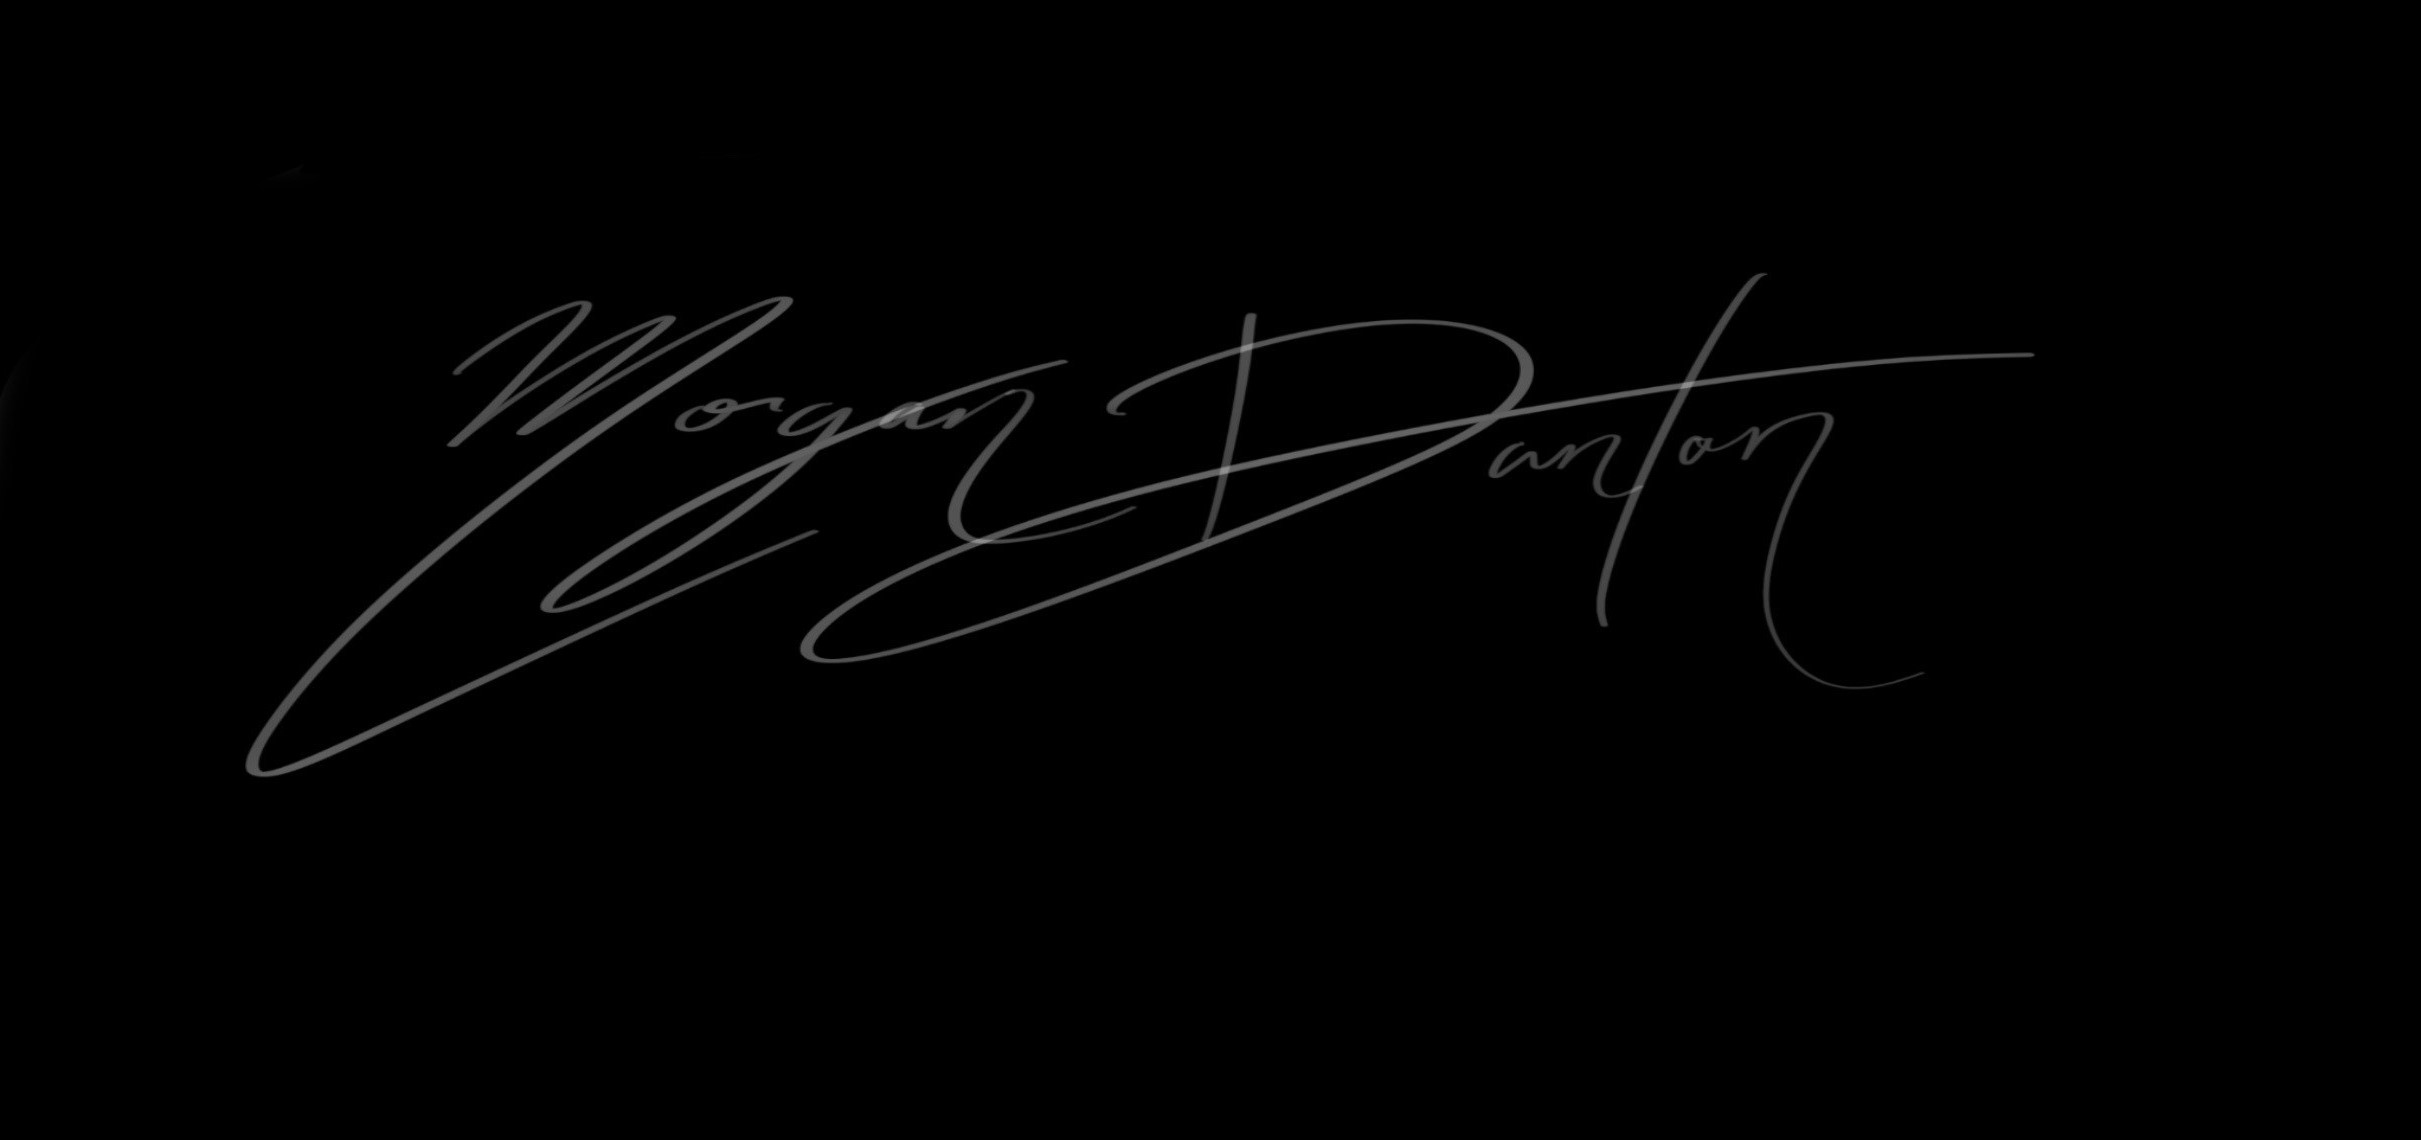 Morgan Danton